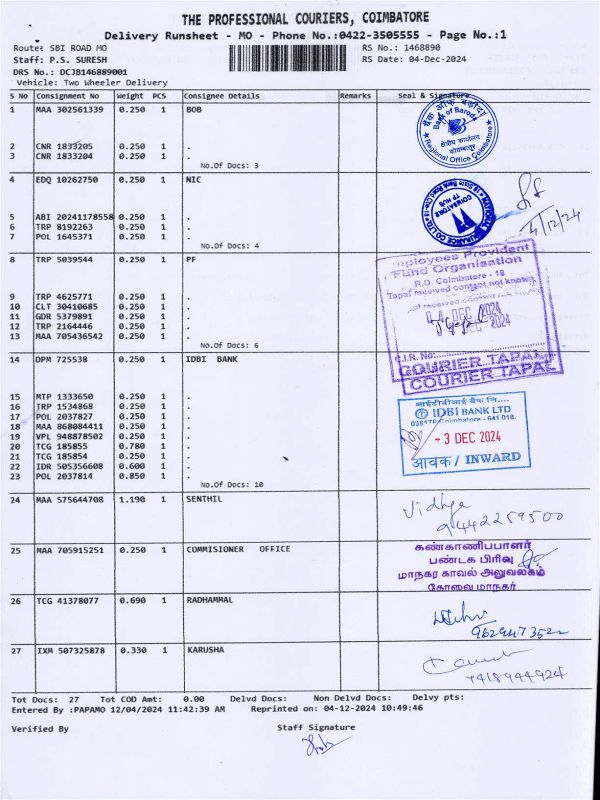 THE PROFESSIONAL COURIERS, COIMBATORE
Delivery Runsheet - MO - Phone No.:0422-3505555 - Page No.:1
Route: SBI ROAD MO
RS No.: 1468890
Staff: P.S. SURESH
RS Date: 04-Dec-2024
DRS No.: DCJB146889001
Vehicle: Two Wheeler Delivery
S No Consignment No Weight PCS Consignee Details Remarks Seal & Signature
1 MAA 302561339 0.250 1 BOB
बैंक ऑफ़ बड़ौदा
Bank of Baroda
क्षेत्रीय कार्यालय
कोयम्बत्तूर
Regional Office Coimbatore
2 CNR 1833205 0.250 1 .
3 CNR 1833204 0.250 1 .
No.Of Docs: 3
4 EDQ 10262750 0.250 1 NIC
COIMBATORE
TP HUB
4/12/24
5 ABI 20241178558 0.250 1 .
6 TRP 8192263 0.250 1 .
7 POL 1645371 0.250 1 .
No.Of Docs: 4
8 TRP 5039544 0.250 1 PF
Employees Provident
Fund Organisation
R.O. Coimbatore - 18
Tapal received content not known
9 TRP 4625771 0.250 1 .
10 CLT 30410685 0.250 1 .
11 GDR 5379891 0.250 1 .
12 TRP 2164446 0.250 1 .
13 MAA 705436542 0.250 1 .
No.Of Docs: 6
04 DEC 2024
C.I.R. No:
COURIER TAPAL
COURIER TAPAL
14 DPM 725538 0.250 1 IDBI BANK
15 MTP 1333650 0.250 1 .
16 TRP 1534868 0.250 1 .
17 POL 2037827 0.250 1 .
18 MAA 868084411 0.250 1 .
19 VPL 948878502 0.250 1 .
20 TCG 185855 0.780 1 .
21 TCG 185854 0.250 1 .
22 IDR 505356608 0.600 1 .
23 POL 2037814 0.850 1 .
No.Of Docs: 10
आईडीबीआई बैंक लि....
IDBI BANK LTD
Coimbatore - 641 018.
- 3 DEC 2024
आवक / INWARD
24 MAA 575644708 1.190 1 SENTHIL
Vidhya
9442259500
25 MAA 705915251 0.250 1 COMMISIONER OFFICE
கண்காணிப்பாளர்
பண்டக பிரிவு
மாநகர காவல் அலுவலகம்
கோவை மாநகர்
26 TCG 41378077 0.690 1 RADHAMMAL
27 IXM 507325878 0.330 1 KARUSHA
Tot Docs: 27 Tot COD Amt: 0.00 Delvd Docs: Non Delvd Docs: Delvy pts:
Entered By :PAPAMO 12/04/2024 11:42:39 AM Reprinted on: 04-12-2024 10:49:46
Verified By
Staff Signature